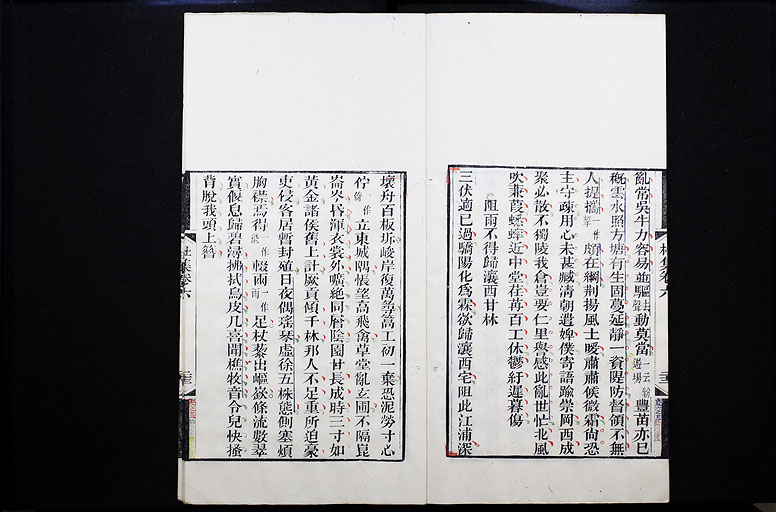 亂常吳牛力容易並驅去聲動莫當一云紛遊場豐苗亦已
穊雲水照方塘有生固蔓延靜一資隄防督領不無
人提攜一作挈頗在綱荆揚風土暖肅肅候微霜尚恐
主守疎用心未甚臧清朝遣婢僕寄語踰崇岡西成
聚必散不獨陵我倉豈要仁里譽感此亂世忙北風
吹蒹葭蟋蟀近中堂荏苒百工休鬱紆遲暮傷
阻雨不得歸瀼西甘林
三伏適已過驕陽化爲霖欲歸瀼西宅阻此江浦深
壞舟百板坼峻岸復萬尋篙工初一棄恐泥勞寸心
佇一作倚立東城隅悵望高飛禽草堂亂玄圃不隔崑
崙岑昏渾衣裳外曠絕同層陰園甘長成時三寸如
黃金諸侯舊上計厥貢傾千林邦人不足重所迫豪
吏侵客居暫封殖日夜偶瑤琴虛徐五株態側塞煩
胸襟焉得一作能輟雨一作兩足杖藜出嶇嶔條流數翠
實偃息歸碧潯拂拭烏皮几喜聞樵牧音令兒快搔
背脫我頭上簪
杜集卷六
杜集卷六